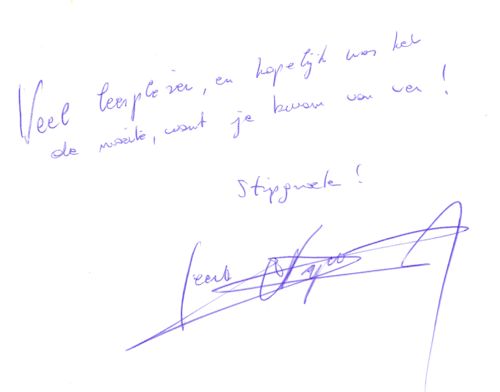 Veel leesplezier, en hopelijk was het
de moeite, want je kwam van ver!
Stripgroeten!